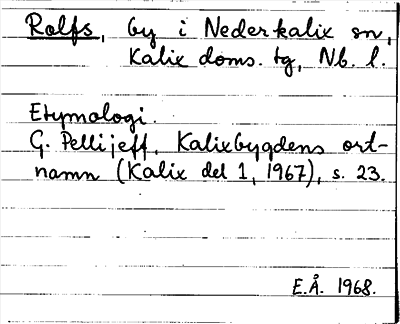 Rolfs, by i Nederkalix sn,
Kalix doms. tg, Nb. l.
Etymologi.
G. Pellijeff, Kalixbygdens ort-
namn (Kalix del 1, 1967), s. 23.
E.Å. 1968.